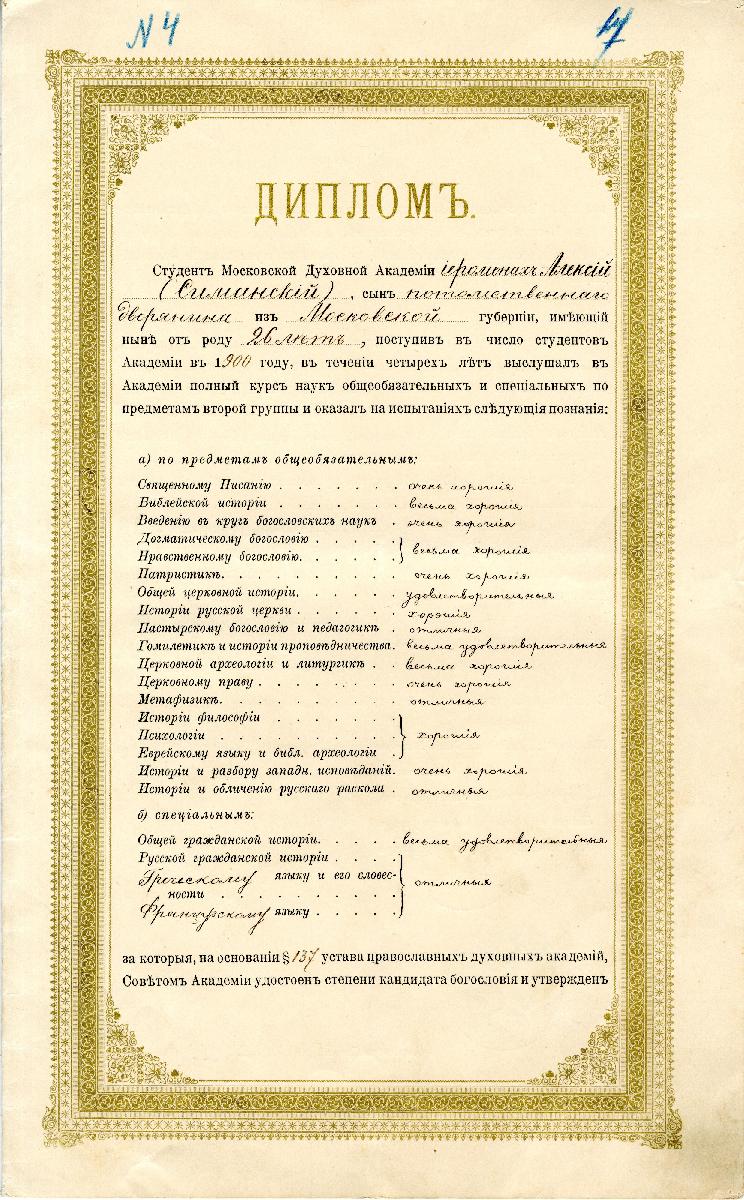 N 4
4
ДИПЛОМЪ.
Студентъ Московской Духовной Академіи іеромонахъ Алексій
(Симанскій), сынъ потомственнаго
дворянина изъ Московской губерніи, имѣющій
нынѣ отъ роду 26 лѣтъ, поступив въ число студентовъ
Академіи въ 1900 году, въ теченіи четырехъ лѣтъ выслушалъ въ
Академіи полный курсъ наукъ общеобязательныхъ и спеціальныхъ по
предметамъ второй группы и оказалъ на испытаніяхъ слѣдующія познанія:
а) по предметамъ общеобязательнымъ:
Священному Писанію . . . . . . . очень хорошія
Библейской исторіи . . . . . . . весьма хорошія
Введенію въ кругъ богословскихъ наукъ . очень хорошія
Догматическому богословію . . . . .
Нравственному богословію. . . . . . весьма хорошія
Патристикѣ. . . . . . . . . . очень хорошія
Общей церковной исторіи. . . . . . удовлетворительныя
Исторіи русской церкви . . . . . . хорошія
Пастырскому богословію и педагогикѣ . отличныя
Гомилетикѣ и исторіи проповѣдничества. весьма удовлетворительныя
Церковной археологіи и литургикѣ . . весьма хорошія
Церковному праву . . . . . . . . очень хорошія
Метафизикѣ. . . . . . . . . . отличныя
Исторіи философіи . . . . . . .
Психологіи . . . . . . . . . . хорошія
Еврейскому языку и библ. археологіи .
Исторіи и разбору западн. исповѣданій. очень хорошія
Исторіи и обличенію русскаго раскола . отличныя
б) спеціальнымъ:
Общей гражданской исторіи. . . . . весьма удовлетворительныя
Русской гражданской исторіи . . . .
Греческому языку и его словес- отличныя
ности . . . . . . . . . .
Французскому языку . . . . .
за которыя, на основаніи § 137 устава православныхъ духовныхъ академій,
Совѣтомъ Академіи удостоенъ степени кандидата богословія и утвержденъ